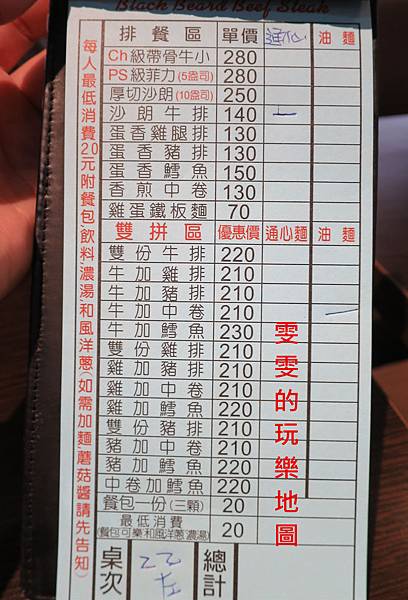 Black Beard Beef Steak
排餐區 單價 通心 油麵
Ch級帶骨牛小 280
PS級菲力(5盎司) 280
厚切沙朗(10盎司) 250
沙朗牛排 140 一
蛋香雞腿排 130
蛋香豬排 130
蛋香鱈魚 150
香煎中卷 130
雞蛋鐵板麵 70
雙拼區 優惠價 通心麵 油麵
雙份牛排 220
牛加雞排 210
牛加豬排 210
牛加中卷 210 一
牛加鱈魚 230
雙份雞排 210
雞加豬排 210
雞加中卷 210
雞加鱈魚 220
雙份豬排 210
豬加中卷 210
豬加鱈魚 220
中卷加鱈魚 220
餐包一份(三顆) 20
最低消費 20
(餐包可樂和風洋蔥濃湯)
桌次 22左 總計
每人最低消費20元附餐包,飲料,濃湯,和風洋蔥(如需加麵,蘑菇醬請先告知)
雯雯的玩樂地圖